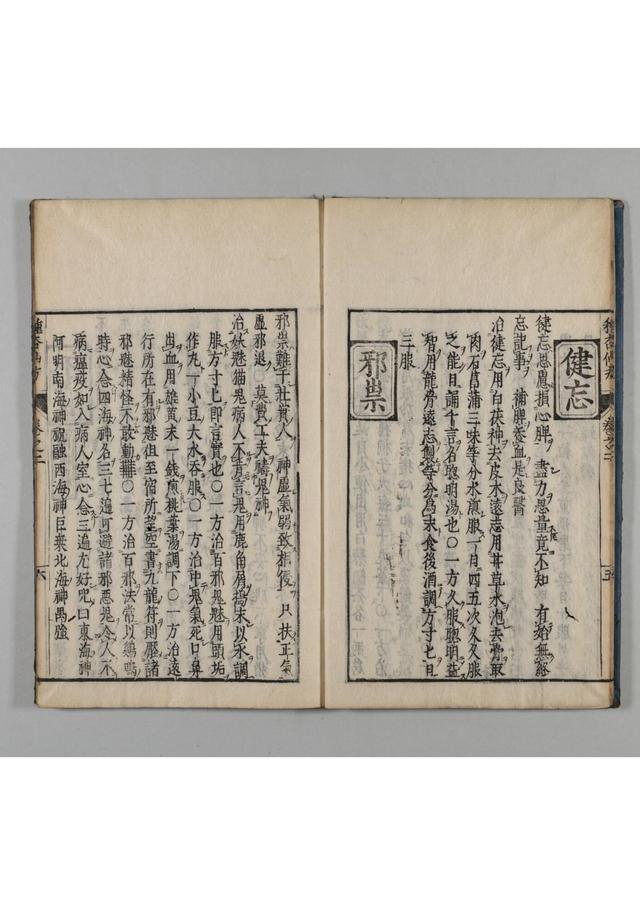 健忘
健忘思慮損心脾 盡力思量竟不知 有始無終
忘記事 補脾養血是良醫
治健忘用白茯神去皮水遠志用甘草水泡去骨取
肉石菖蒲三味等分水煎服一月四五次久久服
之能日誦千言名聰明湯也〇一方久服聰明益
智用龍骨遠志製等分爲末食後酒調方寸匕日
三服
邪祟
邪祟難干壯實人 神虛氣弱致相侵 只扶正氣
虛邪退 莫費工夫禱鬼神
治妖魅猫鬼病人不肯言鬼用鹿角屑搗末以水調
服方寸匕即言實也〇一方治百邪鬼魅用頭垢
作丸一小豆大水吞服〇一方治中鬼氣死口鼻
出血用雄黃末一錢煎桃葉湯調下〇一方治遠
行所在有邪魅但至宿所望空書九龍符則壓諸
邪魅精怪不敢動難〇一方治百邪法常以鷄鳴
時心念四海神名三七遍可避諸邪惡鬼令人不
病瘟疫如入病人室心念三遍尤好呪曰東海神
阿明南海神祝融西海神巨乘北海神禺強